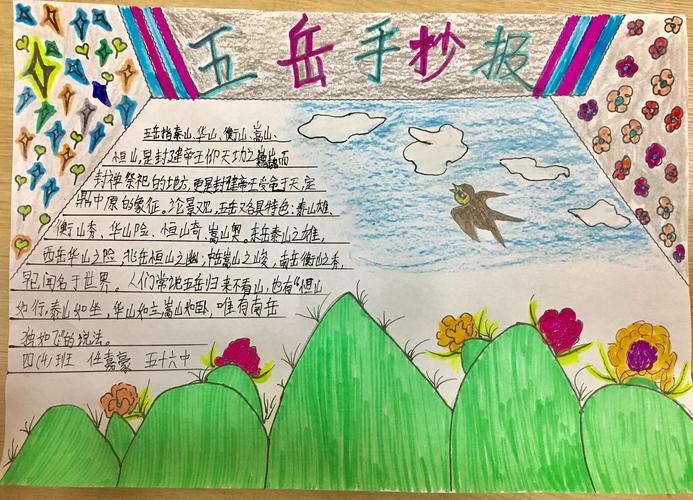 五岳手抄报
五岳指泰山、华山、衡山、嵩山、
恒山,是封建帝王仰天功之巍巍而
封禅祭祀的地方,更是封建帝王受命于天,定
鼎中原的象征。论景观,五岳又各具特色:泰山雄、
衡山秀、华山险、恒山奇、嵩山奥。东岳泰山之雄,
西岳华山之险,北岳恒山之幽,中岳嵩山之峻,南岳衡山之秀,
早已闻名于世界。人们常说五岳归来不看山,也有“恒山
如行,泰山如坐,华山如立嵩山如卧,唯有南岳
独如飞”的说法。
四(4)班 任嘉豪 五十六中